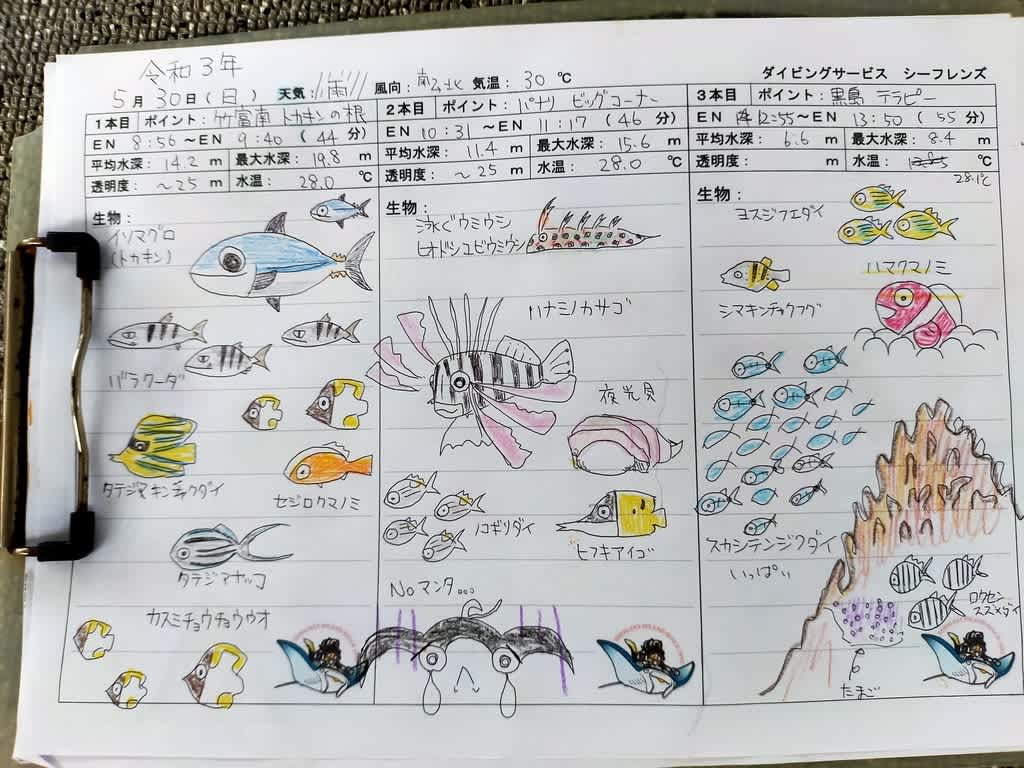 令和3年
5月30日(日) 天気: 雨 風向: 南→北 気温: 30℃
ダイビングサービス シーフレンズ
1本目 ポイント: 竹富南 トカキンの根
EN 8:56~EN 9:40 (44分)
平均水深: 14.2 m 最大水深: 19.8 m
透明度: ~25 m 水温: 28.0 ℃
生物:
イソマグロ
(トカキン)
バラクーダ
タテジマキンチャクダイ
セジロクマノミ
タテジマヤッコ
カスミチョウチョウウオ
2本目 ポイント: パナリ ビッグコーナー
EN 10:31 ~EN 11:17 (46分)
平均水深: 11.4 m 最大水深: 15.6 m
透明度: ~25 m 水温: 28.0 ℃
生物:
泳ぐウミウシ
ヒオドシユビウミウシ
ハナミノカサゴ
夜光貝
ノコギリダイ
ヒフキアイゴ
Noマンタ...
3本目 ポイント: 黒島 テラピー
EN 12:55~EN 13:50 (55分)
平均水深: 6.6 m 最大水深: 8.4 m
透明度: m 水温: ℃
28.1℃
生物:
ヨスジフエダイ
ハマクマノミ
シマキンチャクフグ
スカシテンジクダイ
いっぱい
ロクセン
スズメダイ
たまご